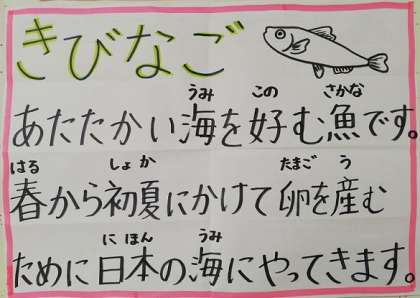 きびなご
うみ この さかな
あたたかい海を好む魚です。
はる しょか たまご う
春から初夏にかけて卵を産む
にほん うみ
ために日本の海にやってきます。